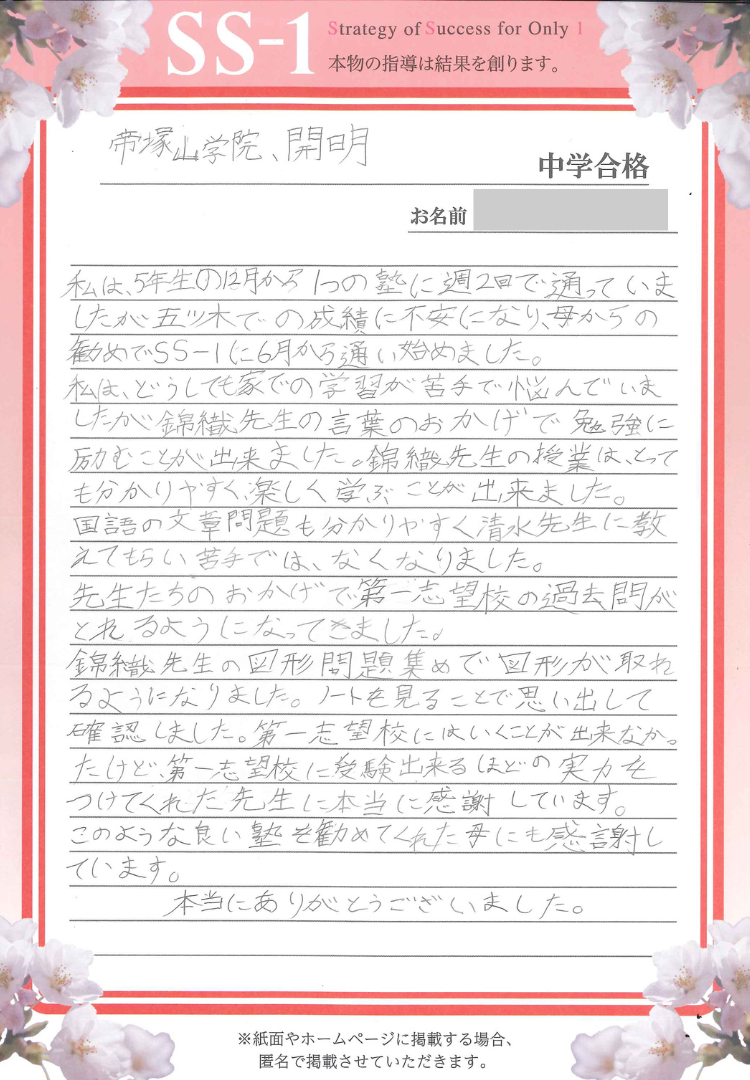 SS-1
Strategy of Success for Only 1
本物の指導は結果を創ります。
帝塚山学院、開明
中学合格
お名前
私は、5年生の12月から1つの塾に週2回で通っていま
したが五ツ木での成績に不安になり、母からの
勧めでSS-1に6月から通い始めました。
私は、どうしても家での学習が苦手で悩んでいま
したが錦織先生の言葉のおかげで勉強に
励むことが出来ました。錦織先生の授業は、とって
も分かりやすく、楽しく学ぶことが出来ました。
国語の文章問題も分かりやすく清水先生に教
えてもらい苦手では、なくなりました。
先生たちのおかげで第一志望校の過去問が
とれるようになってきました。
錦織先生の図形問題集めで図形が取れ
るようになりました。ノートを見ることで思い出して
確認しました。第一志望校にはいくことが出来なか。
たけど、第一志望校に受験出来るほどの実力を
つけてくれた先生に本当に感謝しています。
このような良い塾を勧めてくれた母にも感謝し
ています。
本当にありがとうございました。
※紙面やホームページに掲載する場合、
匿名で掲載させていただきます。